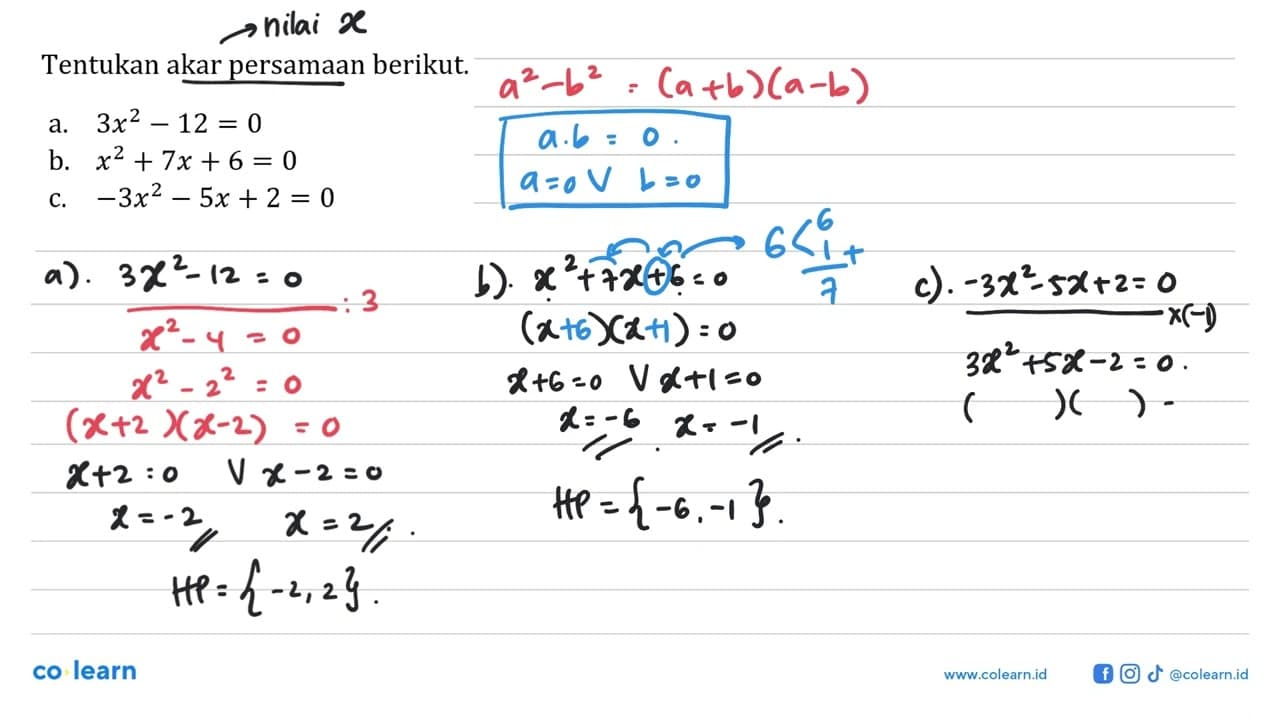 → nilai x
Tentukan akar persamaan berikut.
a. 3x² − 12 = 0
b. x² + 7x + 6 = 0
c. −3x² − 5x + 2 = 0
a² − b² = (a+b)(a−b)
a.b = 0.
a=0 V b=0
a). 3x² - 12 = 0
: 3
x² - 4 = 0
x² - 2² = 0
(x+2)(x-2) = 0
x+2 = 0 V x-2 = 0
x = -2 x = 2
HP = {-2, 2}.
b). x² + 7x + 6 = 0
6 < 6
1 +
7
(x+6)(x+1) = 0
x+6 = 0 V x+1 = 0
x = -6 x = -1
HP = {-6, -1}.
c). -3x² - 5x + 2 = 0
x(-1)
3x² + 5x - 2 = 0.
( )( ) -
co learn
www.colearn.id
@colearn.id